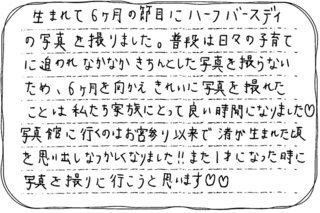 生まれて6ヶ月の節目にハーフバースディ
の写真を撮りました。普段は日々の子育て
に追われなかなかきちんとした写真を撮らない
ため、6ヶ月を向かえきれいに写真を撮れた
ことは私たち家族にとって良い時間になりました♡
写真館に行くのはお宮参り以来で渚が生まれた頃
を思い出しなつかしくなりました!!また1才になった時に
写真を撮りに行こうと思います♡♡